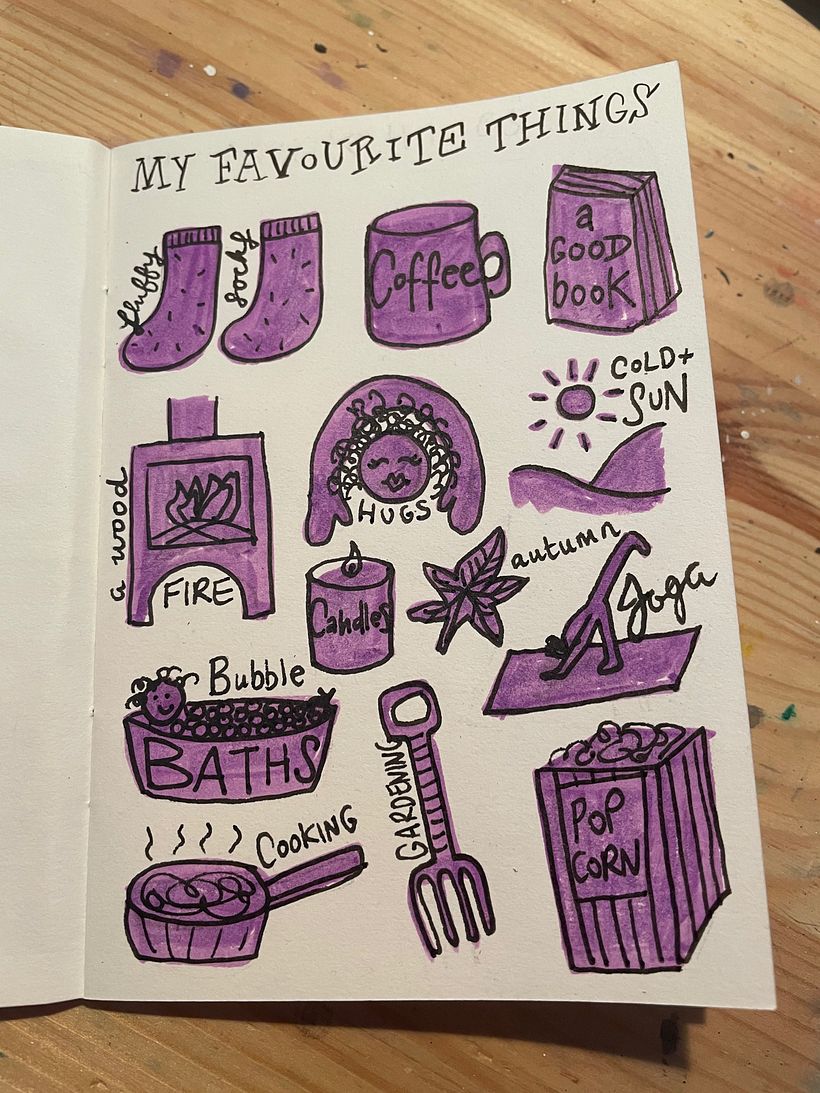 MY FAVOURITE THINGS
fluffy
socks
Coffee
a
GOOD
book
COLD+
SUN
a wood
FIRE
HUGS
Candles
autumn
Yoga
Bubble
BATHS
GARDENING
POP
CORN
COOKING